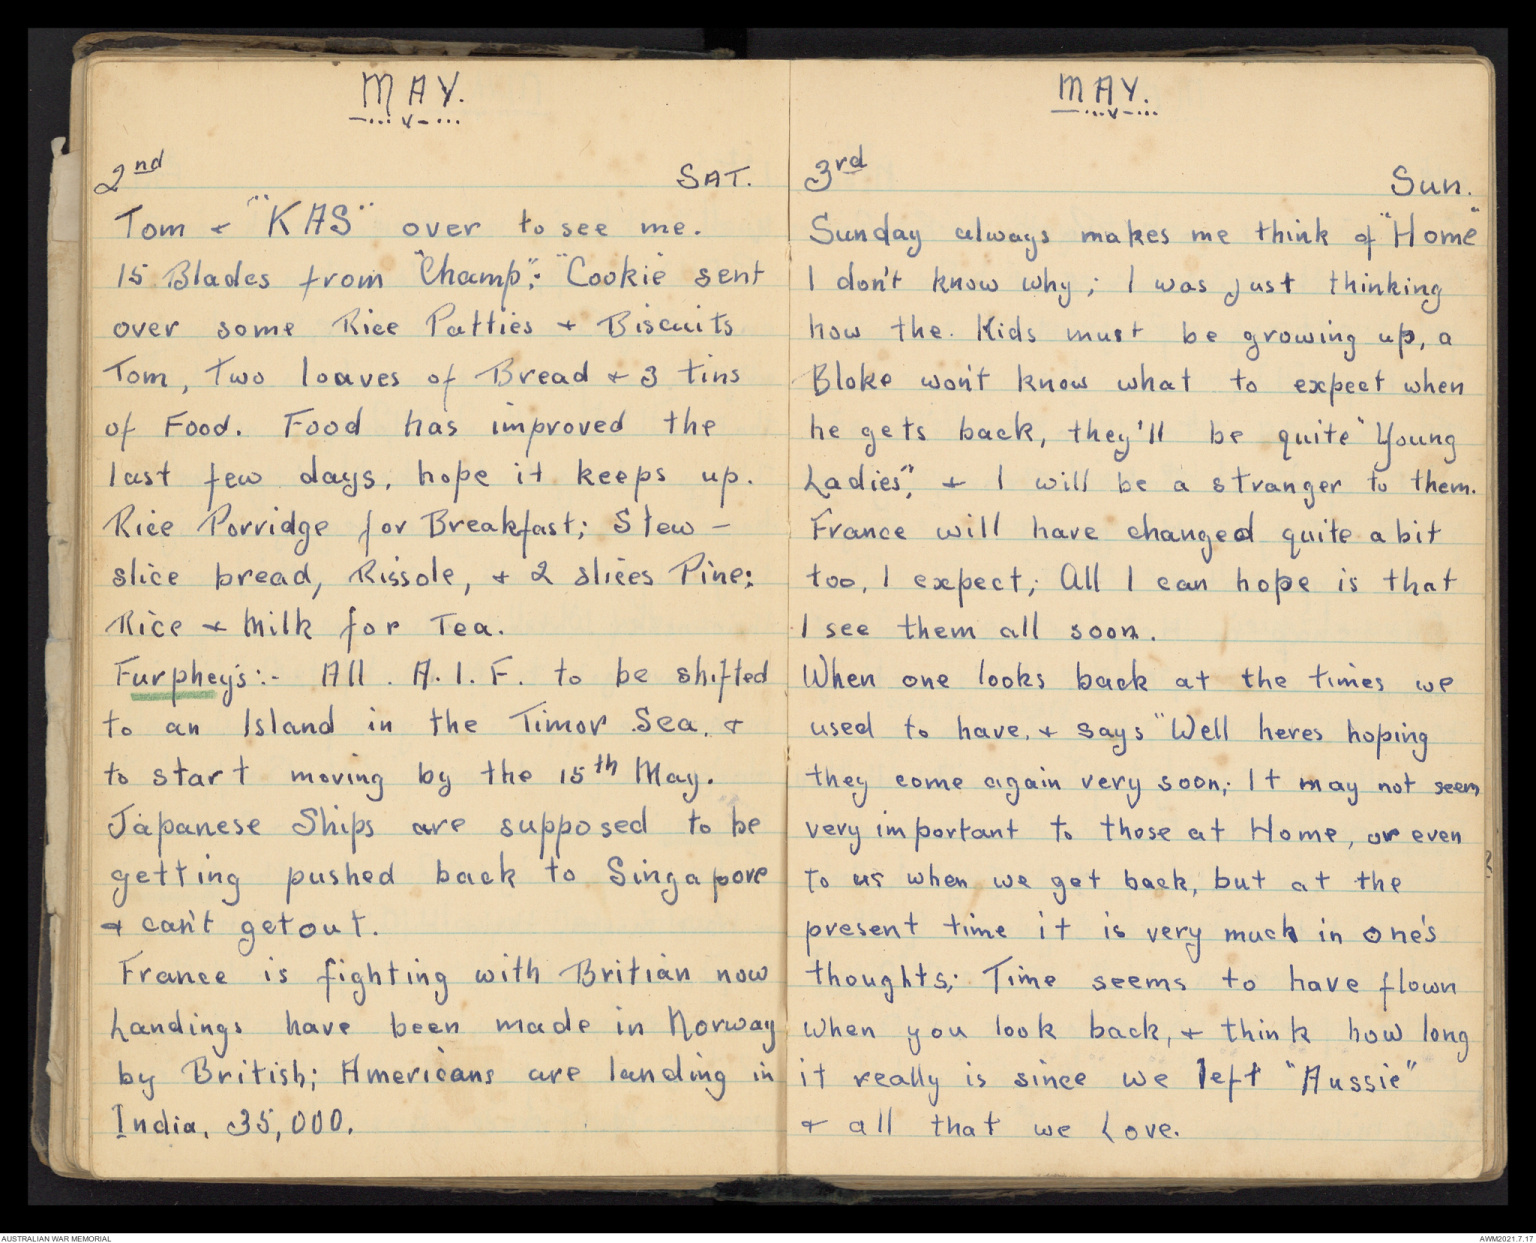 MAY.
2nd SAT.
Tom + "KAS" over to see me.
15 Blades from "Champ"; "Cookie sent
over some Rice Patties + Biscuits
Tom, Two loaves of Bread + 3 tins
of Food. Food has improved the
last few days, hope it keeps up.
Rice Porridge for Breakfast; Stew -
slice bread, Rissole, + 2 slices Pine;
Rice + Milk for Tea.
Furphey's:- All. A. I. F. to be shifted
to an Island in the Timor Sea. +
to start moving by the 15th May.
Japanese Ships are supposed to be
getting pushed back to Singapore
+ can't get out.
France is fighting with Britian now
Landings have been made in Norway
by British; Americans are landing in
India. 35,000.
MAY.
3rd Sun.
Sunday always makes me think of "Home"
I don't know why; I was just thinking
how the. Kids must be growing up, a
Bloke won't know what to expect when
he gets back, they'll be quite "Young
Ladies", + I will be a stranger to them.
France will have changed quite a bit
too, I expect; All I can hope is that
I see them all soon.
When one looks back at the times we
used to have. + says "Well heres hoping
they come again very soon; It may not seem
very important to those at Home, or even
to us when we get back, but at the
present time it is very much in one's
thoughts; Time seems to have flown
when you look back, + think how long
it really is since we left "Aussie"
+ all that we Love.
AUSTRALIAN WAR MEMORIAL
AWM2021.7.17